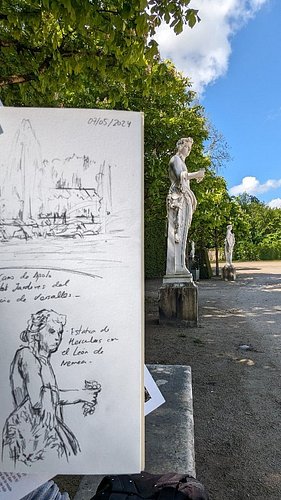 07/05/2024
de Apolo
Jardines del
de Versalles.-
Estatua de
Hércules con
el León de
Nemea.-